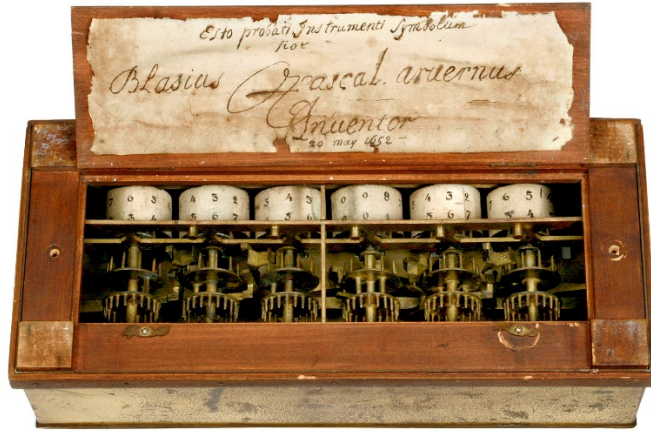 Esto probati Instrumenti Symbolum
hoc
Blasius Pascal. arvernus
Inventor
20 may 1652
7 6 5
4 3 2
5 4 3
0 9 8
4 3 2
7 6 5
3 4
5 6 7
5 6
0 0 1
5 6 7
3 4